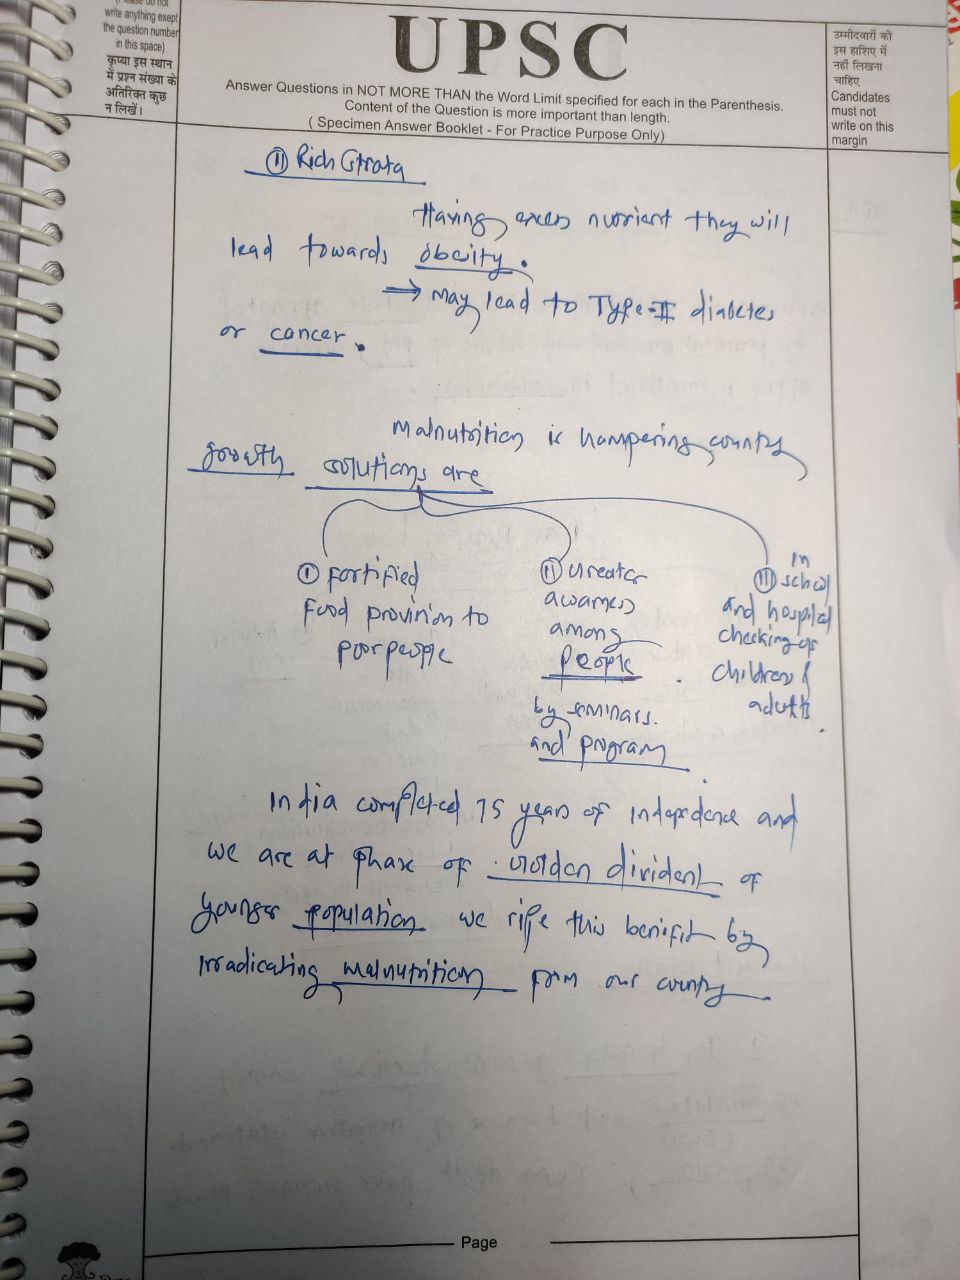 write anything exept
the question number
in this space)
कृप्या इस स्थान
में प्रश्न संख्या के
अतिरिक्त कुछ
न लिखें।
UPSC
Answer Questions in NOT MORE THAN the Word Limit specified for each in the Parenthesis.
Content of the Question is more important than length.
( Specimen Answer Booklet - For Practice Purpose Only)
उम्मीदवारों को
इस हाशिए में
नहीं लिखना
चाहिए
Candidates
must not
write on this
margin
(II) Rich Strata
Having exces nutrient they will
lead towards obecity.
→ may lead to Type-II diabetes
or cancer.
Malnutrition is hampering country
growth solutions are
(I) Fortified
Food provision to
poor people
(II) Greater
awarness
among
people.
by seminars.
and program.
in
(III) school
and hospital
checking of
children &
adults.
India completed 75 years of indepedence and
we are at phase of golden divident of
younger population we ripe this benifit by
irradicating malnutrition from our country.
Page